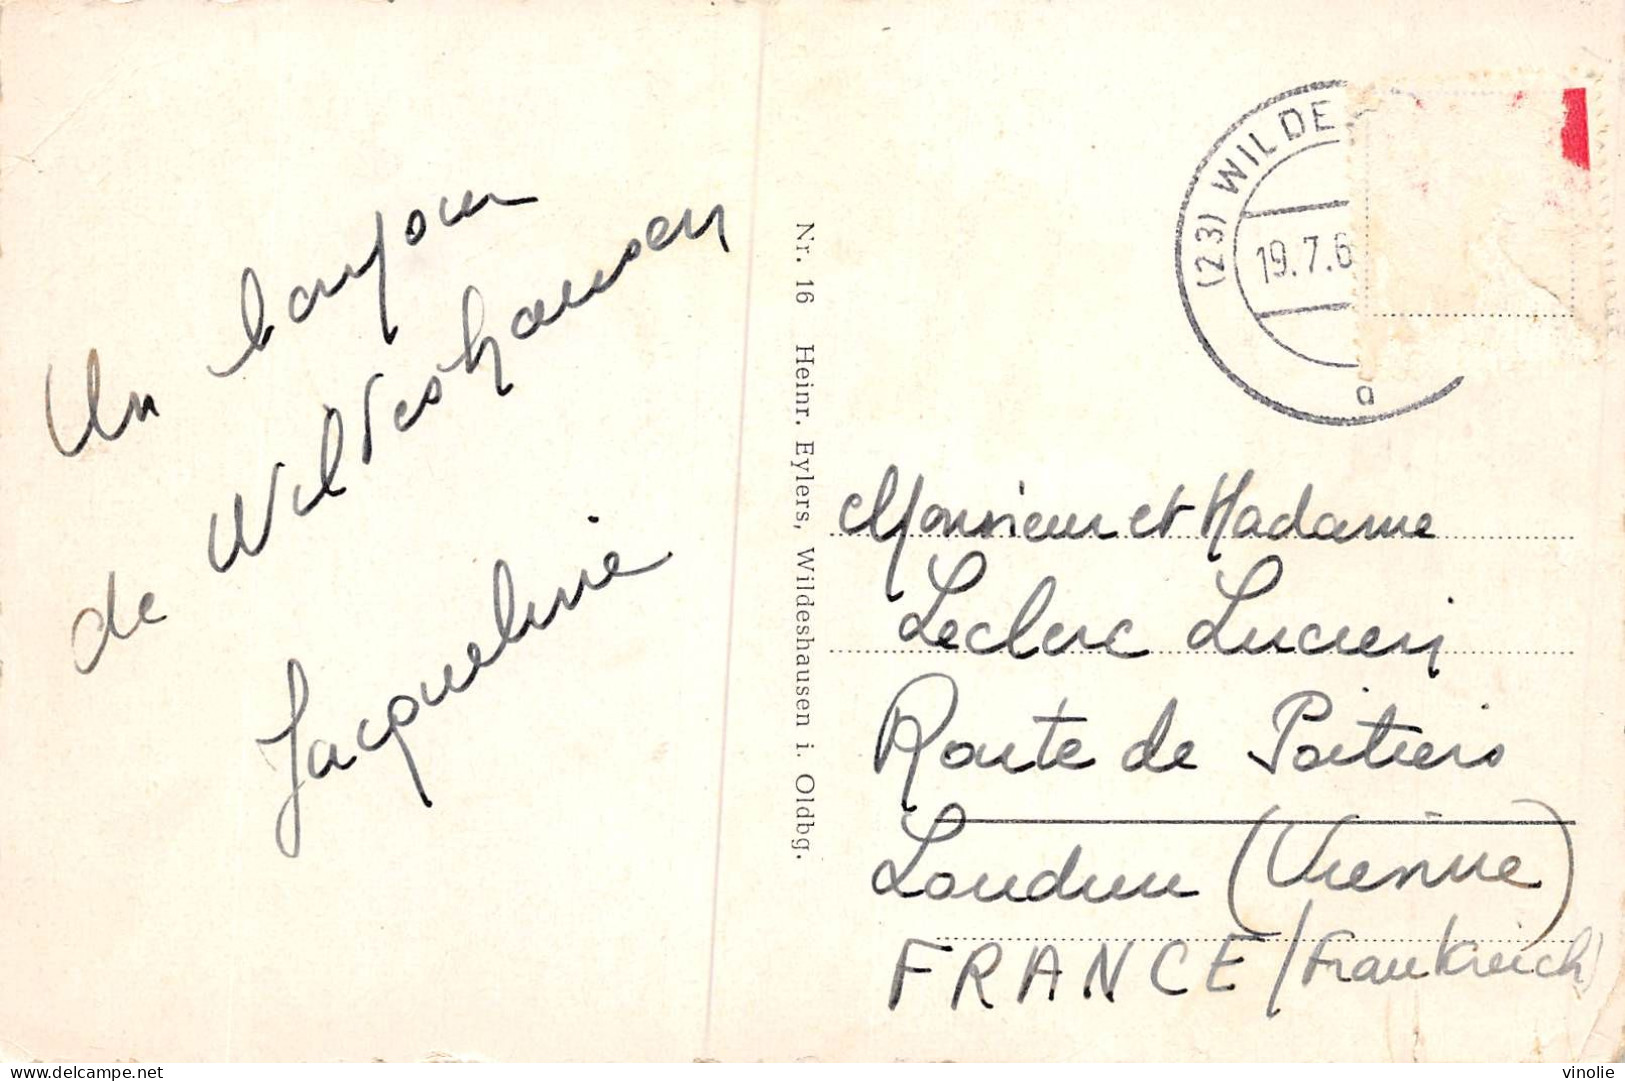 Un bonjour
de Wildeshausen
Jacqueline
Nr. 16 Heinr. Eylers, Wildeshausen i. Oldbg.
(23) WILDE
19.7.6
a
Monsieur et Madame
Leclerc Lucien
Route de Poitiers
Loudun (Vienne)
FRANCE / Frankreich
www.delcampe.net
vinolie